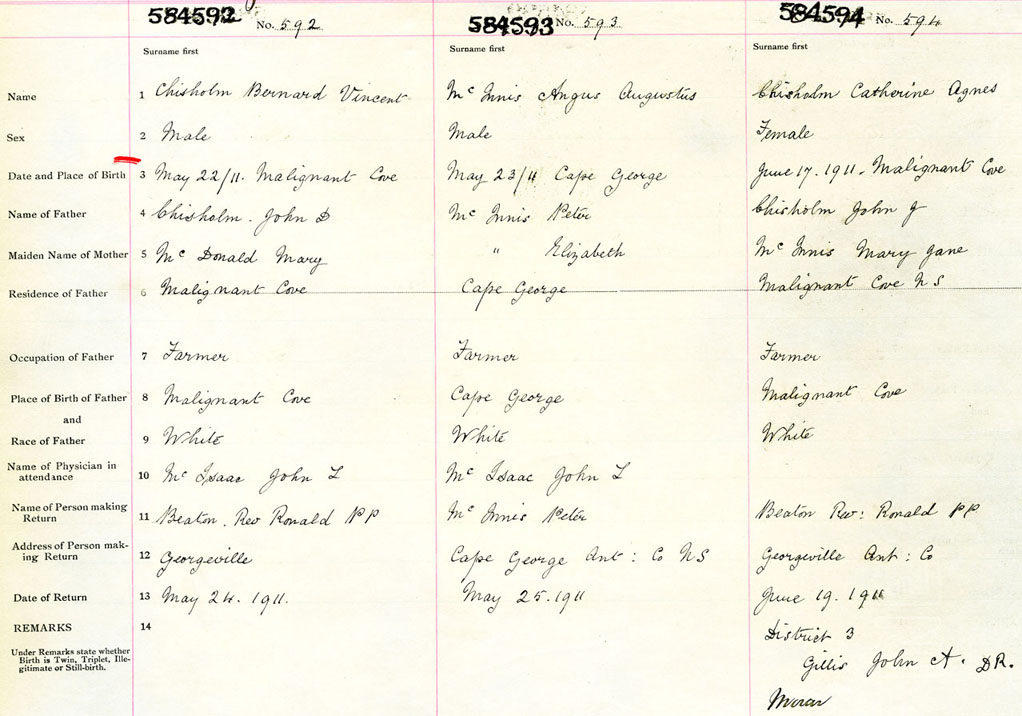 584592 No. 592 584593 No. 593 584594 No. 594
Surname first Surname first Surname first
Name 1 Chisholm Bernard Vincent Mc Innis Angus Augustus Chisholm Catherine Agnes
Sex 2 Male Male Female
Date and Place of Birth 3 May 22/11. Malignant Cove May 23/11 Cape George June 17. 1911. Malignant Cove
Name of Father 4 Chisholm. John D Mc Innis Peter Chisholm John J
Maiden Name of Mother 5 Mc Donald Mary " Elizabeth Mc Innis Mary Jane
Residence of Father 6 Malignant Cove Cape George Malignant Cove N S
Occupation of Father 7 Farmer Farmer Farmer
Place of Birth of Father 8 Malignant Cove Cape George Malignant Cove
and
Race of Father 9 White White White
Name of Physician in
attendance 10 Mc Isaac John L Mc Isaac John L
Name of Person making
Return 11 Beaton. Rev Ronald P P Mc Innis Peter Beaton Rev: Ronald P P
Address of Person mak-
ing Return 12 Georgeville Cape George Ant: Co N S Georgeville Ant: Co
Date of Return 13 May 24. 1911. May 25. 1911 June 19. 1911
REMARKS 14 District 3
Under Remarks state whether
Birth is Twin, Triplet, Ille-
gitimate or Still-birth.
Gillis John A. D R.